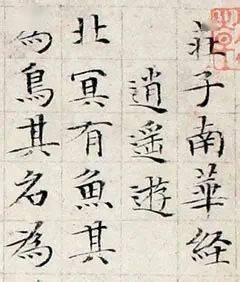 莊子南華經
逍遙遊
北冥有魚其
鳥其名為